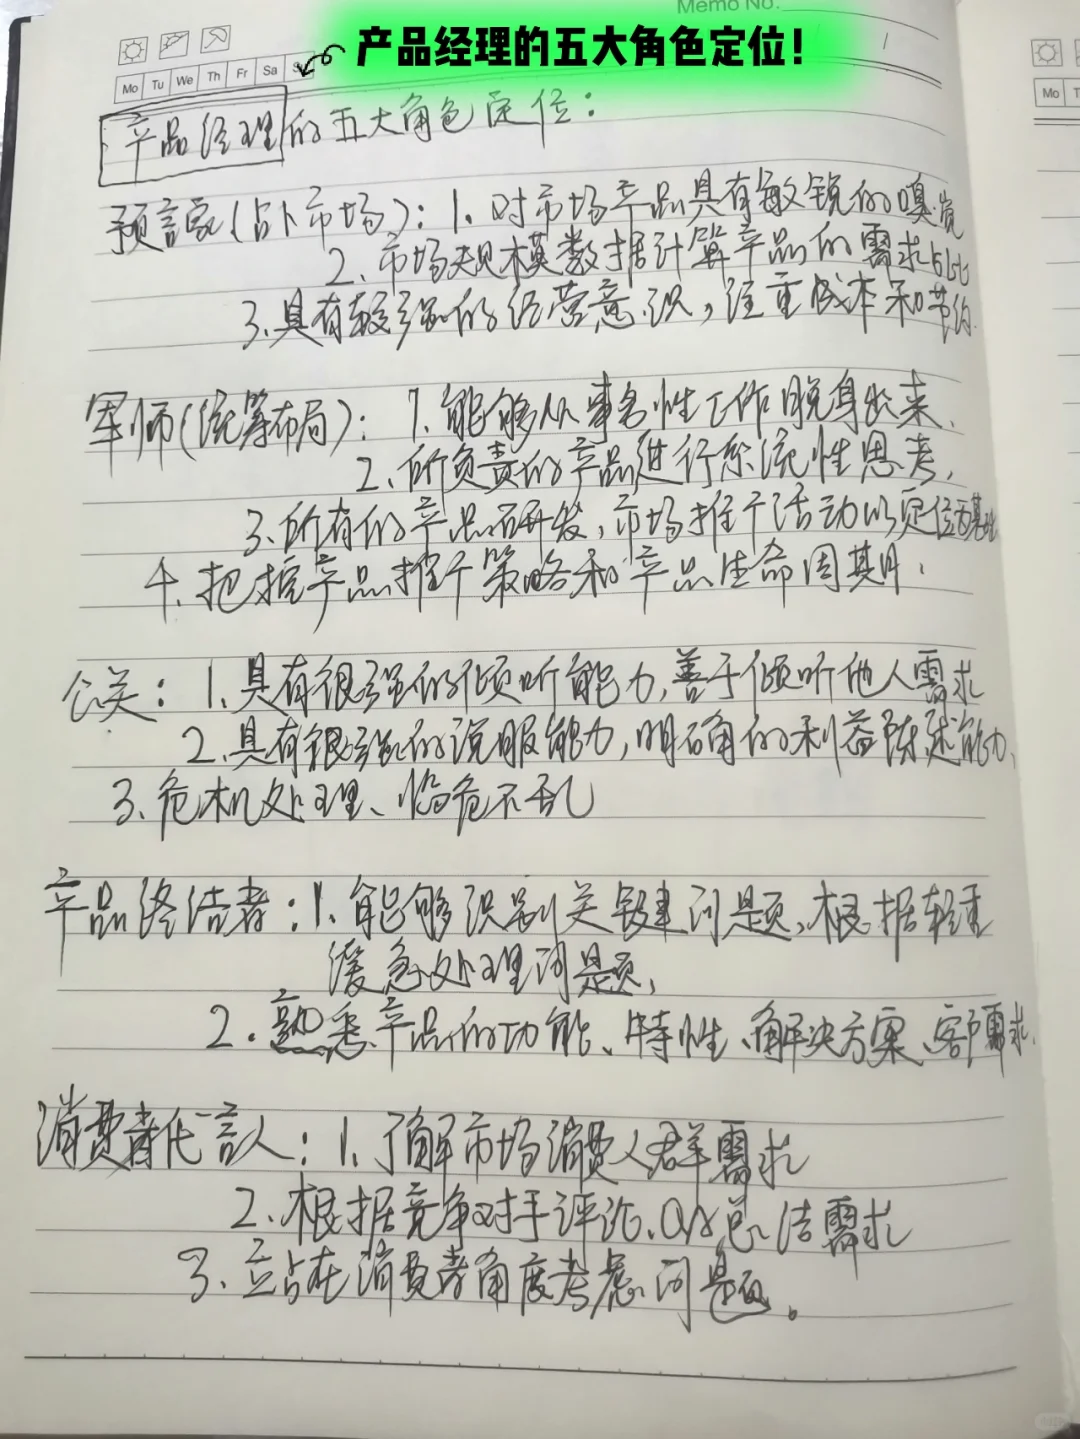 Memo No.
产品经理的五大角色定位!
Mo Tu We Th Fr Sa
Mo
产品经理的五大角色定位:
预言家(占卜市场): 1. 对市场产品具有敏锐的嗅觉
2、市场规模数据计算产品的需求占比
3、具有较强的经营意识,注重成本和节约.
军师(统筹布局): 1. 能够从事务性工作脱身出来、
2、所负责的产品进行系统性思考,
3、所有的产品研发,市场推广活动以定位为基础
4、把控产品推广策略和产品生命周期.
公关: 1. 具有很强的倾听能力,善于倾听他人需求
2、具有很强的说服能力,明确的利益陈述能力、
3、危机处理、临危不乱
产品终结者:1、能够识别关键问题,根据轻重
缓急处理问题,
2. 熟悉产品的功能、特性、解决方案、客户需求.
消费者代言人: 1、了解市场消费人群需求
2、根据竞争对手评论、QA总结需求
3、立占在消费者角度考虑问题。